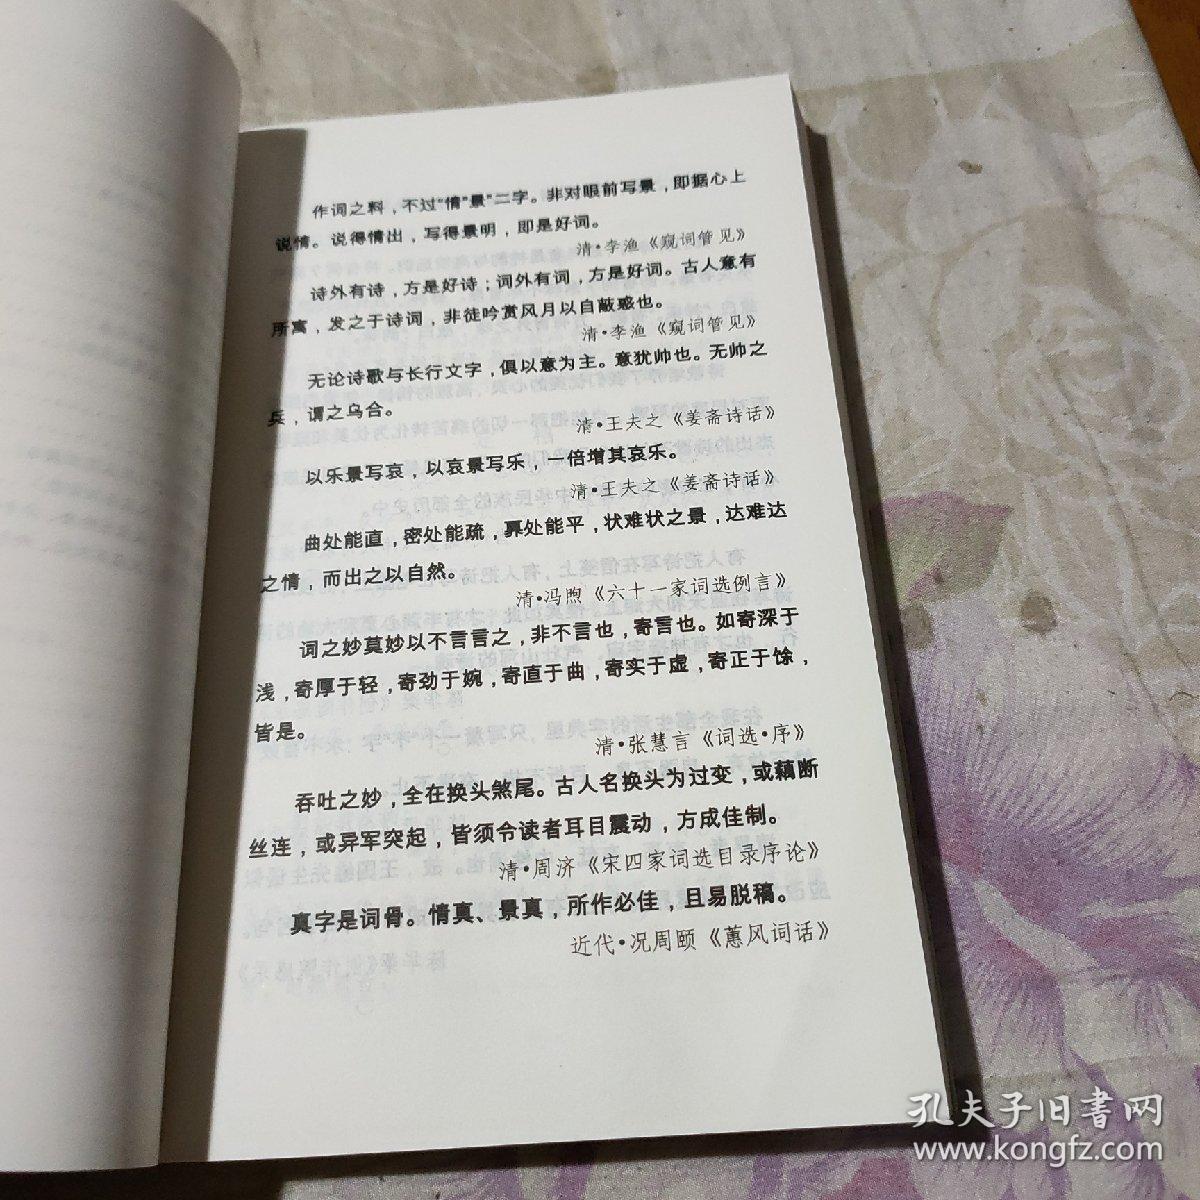 作词之料，不过“情”景”二字。非对眼前写景，即据心上
说情。说得情出，写得景明，即是好词。
清·李渔《窥词管见》
诗外有诗，方是好诗；词外有词，方是好词。古人意有
所寓，发之于诗词，非徒吟赏风月以自蔽惑也。
清·李渔《窥词管见》
无论诗歌与长行文字，俱以意为主。意犹帅也。无帅之
兵，谓之乌合。
清·王夫之《姜斋诗话》
以乐景写哀，以哀景写乐，一倍增其哀乐。
清·王夫之《姜斋诗话》
曲处能直，密处能疏，奡处能平，状难状之景，达难达
之情，而出之以自然。
清·冯煦《六十一家词选例言》
词之妙莫妙以不言言之，非不言也，寄言也。如寄深于
浅，寄厚于轻，寄劲于婉，寄直于曲，寄实于虚，寄正于馀，
皆是。
清·张慧言《词选·序》
吞吐之妙，全在换头煞尾。古人名换头为过变，或藕断
丝连，或异军突起，皆须令读者耳目震动，方成佳制。
清·周济《宋四家词选目录序论》
真字是词骨。情真、景真，所作必佳，且易脱稿。
近代·况周颐《蕙风词话》
孔夫子旧书网
www.kongfz.com